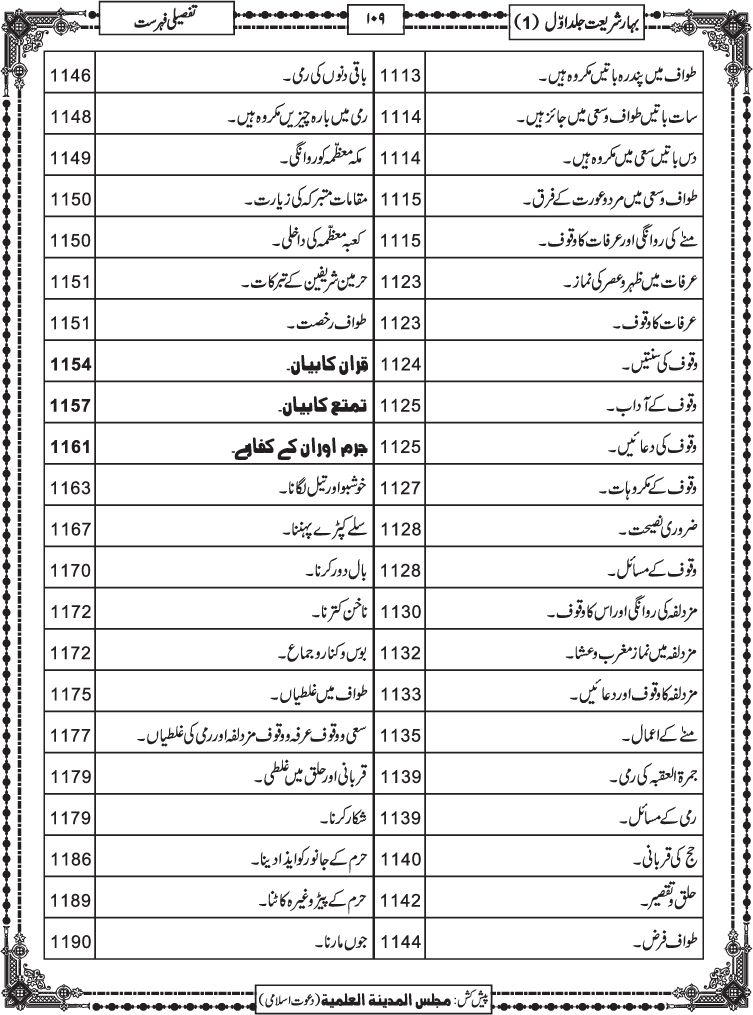 بہارشریعت جلد اوّل (1)
۱۰۹
تفصیلی فہرست
طواف میں پندرہ باتیں مکروہ ہیں۔ 1113
سات باتیں طواف وسعی میں جائز ہیں۔ 1114
دس باتیں سعی میں مکروہ ہیں۔ 1114
طواف وسعی میں مرد و عورت کے فرق۔ 1115
منےٰ کی روانگی اور عرفات کا وقوف۔ 1115
عرفات میں ظہر و عصر کی نماز۔ 1123
عرفات کا وقوف۔ 1123
وقوف کی سنتیں۔ 1124
وقوف کے آداب۔ 1125
وقوف کی دعائیں۔ 1125
وقوف کے مکروہات۔ 1127
ضروری نصیحت۔ 1128
وقوف کے مسائل۔ 1128
مزدلفہ کی روانگی اور اس کا وقوف۔ 1130
مزدلفہ میں نماز مغرب و عشا۔ 1132
مزدلفہ کا وقوف اور دعائیں۔ 1133
منےٰ کے اعمال۔ 1135
جمرۃ العقبہ کی رمی۔ 1139
رمی کے مسائل۔ 1139
حج کی قربانی۔ 1140
حلق و تقصیر۔ 1142
طواف فرض۔ 1144
باقی دنوں کی رمی۔ 1146
رمی میں بارہ چیزیں مکروہ ہیں۔ 1148
مکہ معظّمہ کو روانگی۔ 1149
مقامات متبرکہ کی زیارت۔ 1150
کعبہ معظّمہ کی داخلی۔ 1150
حرمین شریفین کے تبرکات۔ 1151
طواف رخصت۔ 1151
قران کا بیان۔ 1154
تمتع کا بیان۔ 1157
جرم اور ان کے کفارے۔ 1161
خوشبو اور تیل لگانا۔ 1163
سلے کپڑے پہننا۔ 1167
بال دور کرنا۔ 1170
ناخن کترنا۔ 1172
بوس و کنار و جماع۔ 1172
طواف میں غلطیاں۔ 1175
سعی و وقوف عرفہ و وقوف مزدلفہ اور رمی کی غلطیاں۔ 1177
قربانی اور حلق میں غلطی۔ 1179
شکار کرنا۔ 1179
حرم کے جانور کو ایذا دینا۔ 1186
حرم کے پیڑ وغیرہ کاٹنا۔ 1189
جوں مارنا۔ 1190
پیش کش: مجلس المدینة العلمیة (دعوت اسلامی)